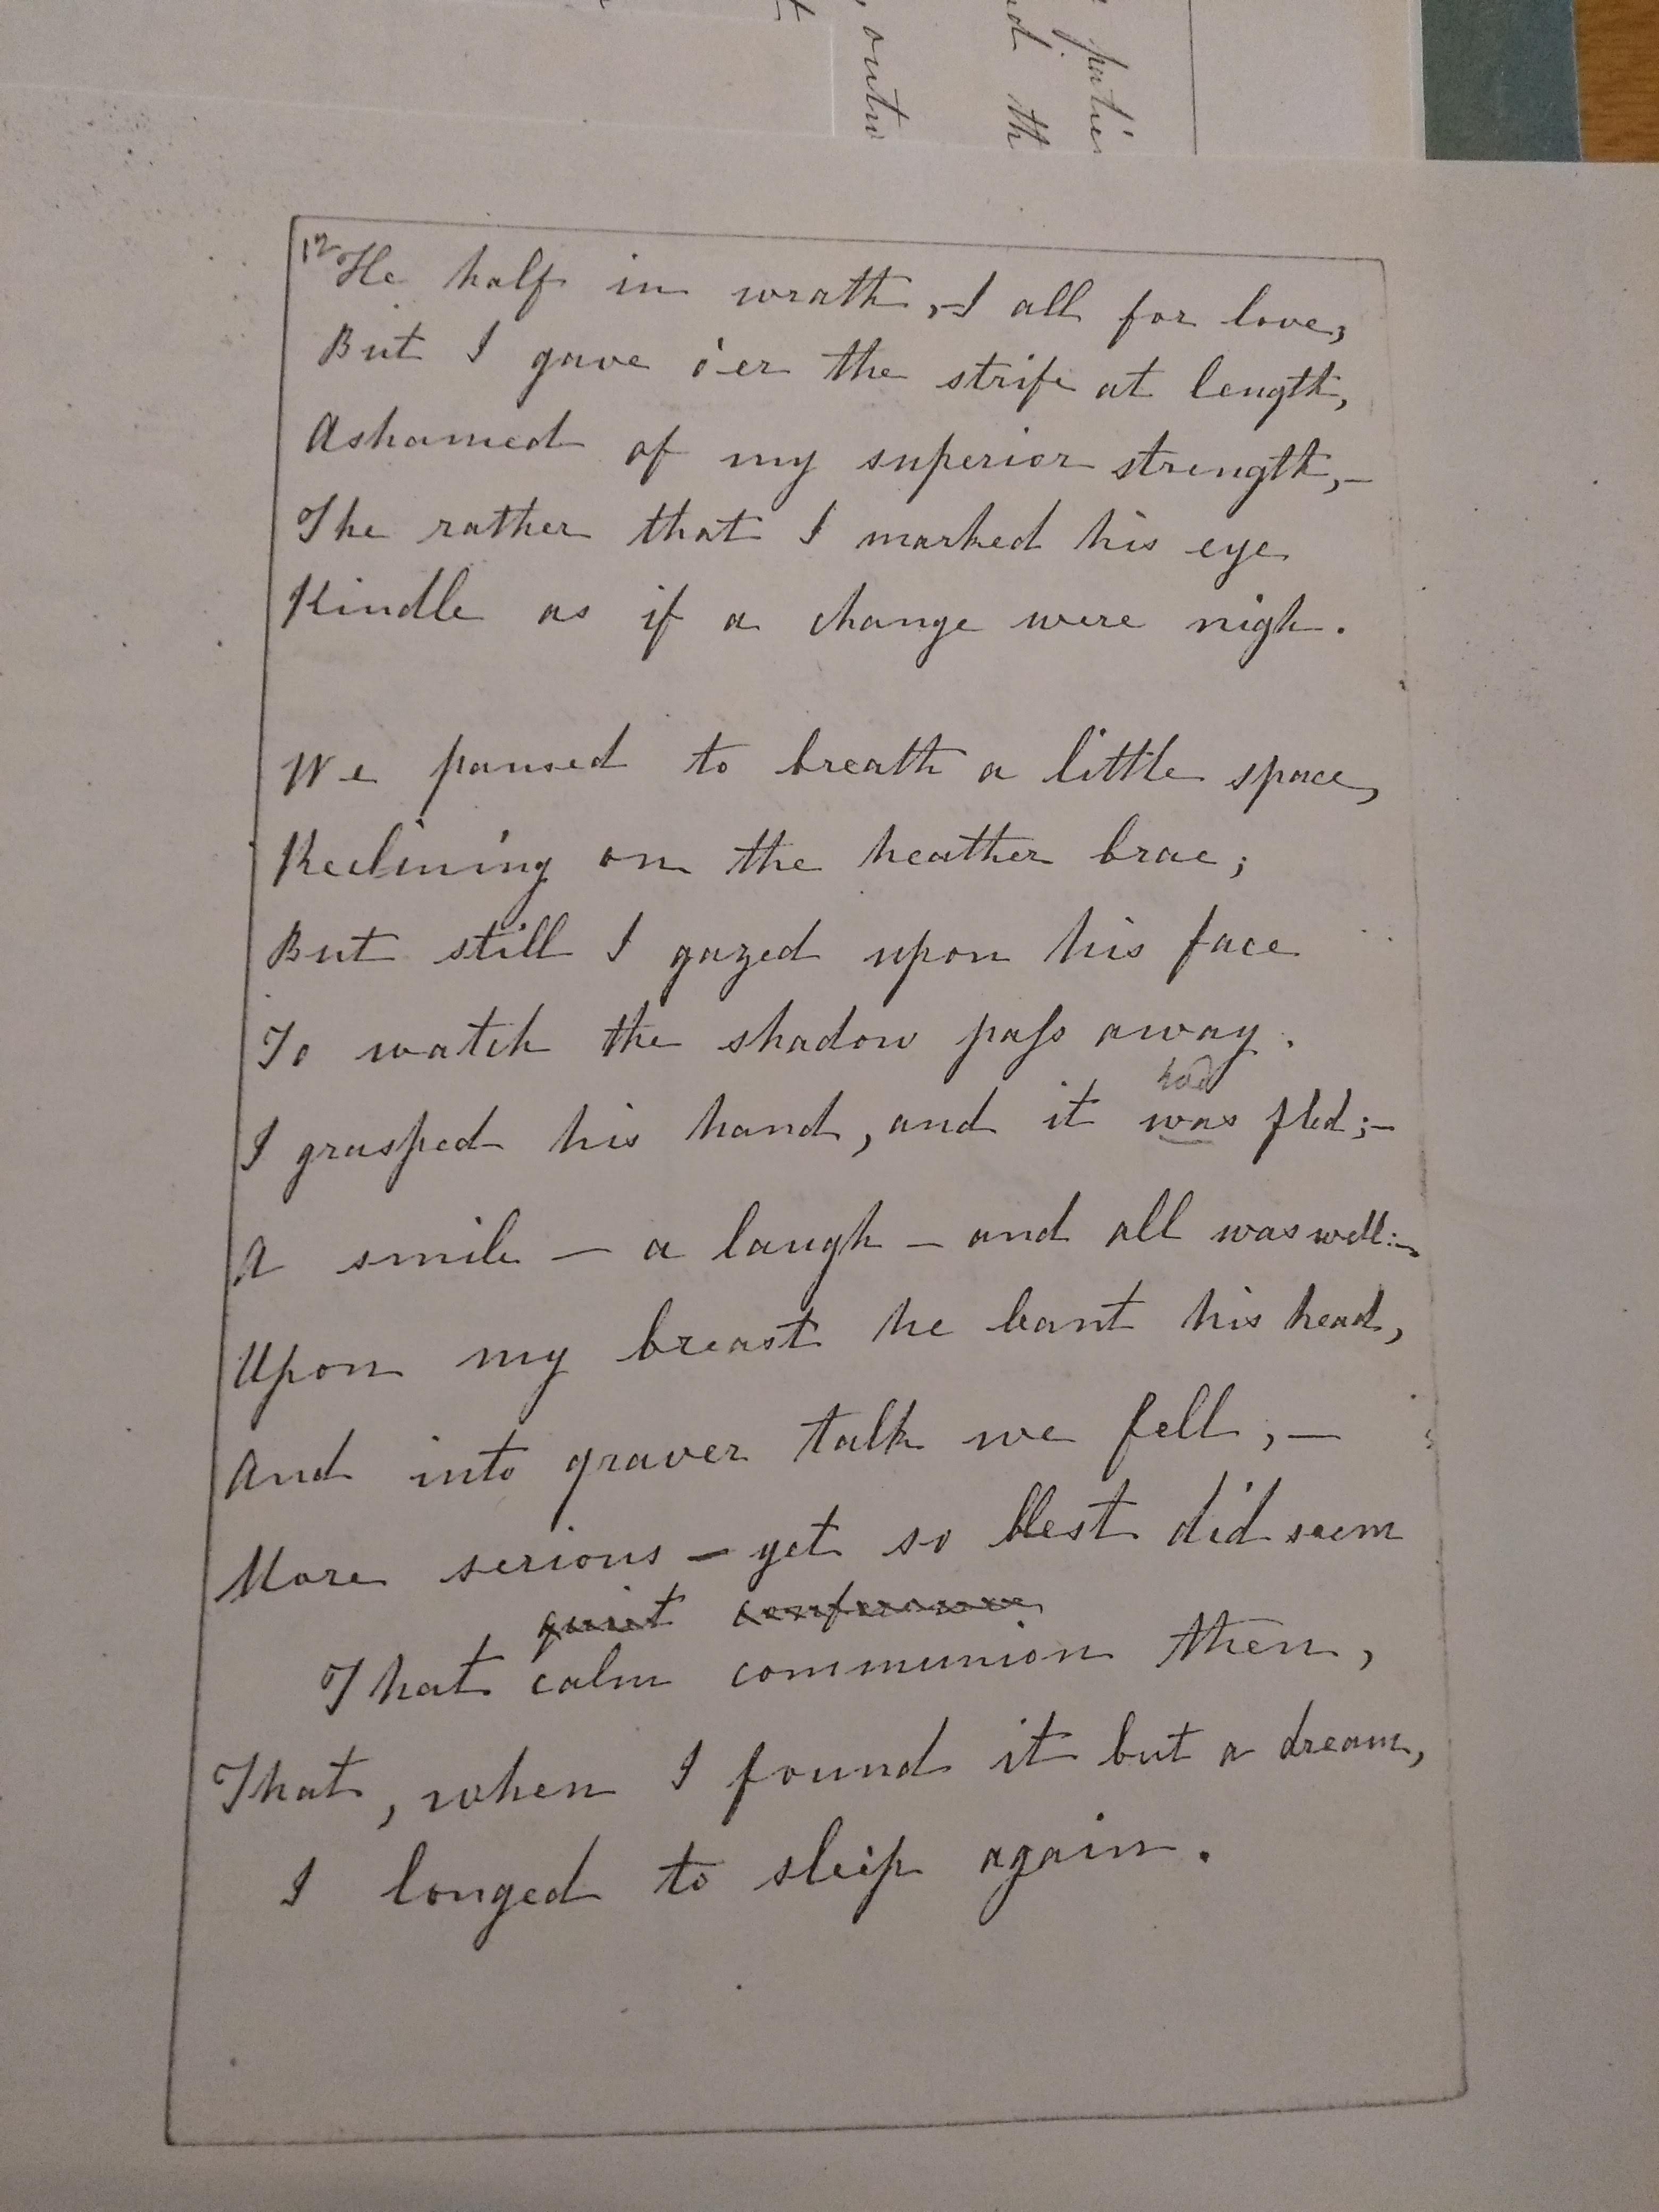 , outw
nd th
patie
12
He half in wrath,-I all for love,
But I gave o'er the strife at length,
Ashamed of my superior strength,-
The rather that I marked his eye
Kindle as if a change were nigh.
We paused to breath a little space,
Reclining on the heather brae;
But still I gazed upon his face
To watch the shadow paſs away.
had
I grasped his hand, and it was fled;-
A smile - a laugh - and all was well:-
Upon my breast he leant his head,
And into graver talk we fell,-
More serious - yet so blest did seem
quiet conference
That calm communion then,
That, when I found it but a dream,
I longed to sleep again.